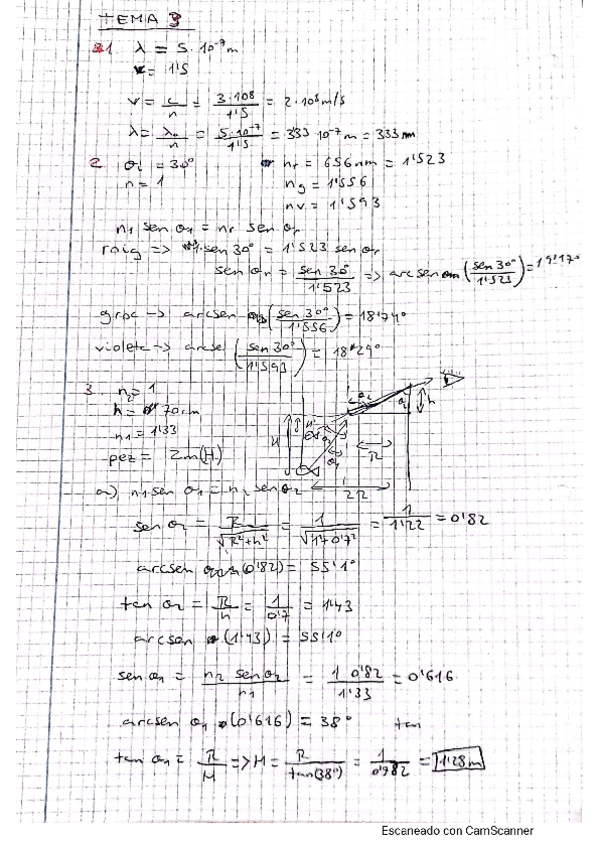 TEMA 3
1 λ = 5 · 10⁻⁷ m
= 1'5
v = c/n = 3·10⁸/1'5 = 2·10⁸ m/s
λ = λ₀/n = 5·10⁻⁷/1'5 = 333 10⁻⁷ m = 333 nm
2 σi = 30° nr = 656 nm = 1'523
n = 1 ng = 1'556
nv = 1'593
n1 sen σ1 = nr sen σr
roig => 1·sen 30° = 1'523 sen σr
sen σr = sen 30°/1'523 => arcsen (sen 30°/1'523) = 19'17°
groc -> arcsen (sen 30°/1'556) = 18'74°
violeta -> arcse (sen 30°/1'593) = 18'29°
3. n2 = 1
h = 70 cm
n1 = 1'33
pez = 2m (H)
H h R 2R
a) n1 sen σ1 = n2 sen σ2
sen σ2 = R/√(R²+h²) = 1/√(1+0'7²) = 1/1'22 = 0'82
arcsen (0'82) = 55'1°
tan σ2 = R/h = 1/0'7 = 1'43
arcsen (1'43) = 55'1°
sen σ1 = n2 sen σ2/n1 = 1 0'82/1'33 = 0'616
arcsen σ1 (0'616) = 38° tan
tan σ1 = R/H => H = R/tan(38°) = 1/0'782 = 1'28 m
Escaneado con CamScanner